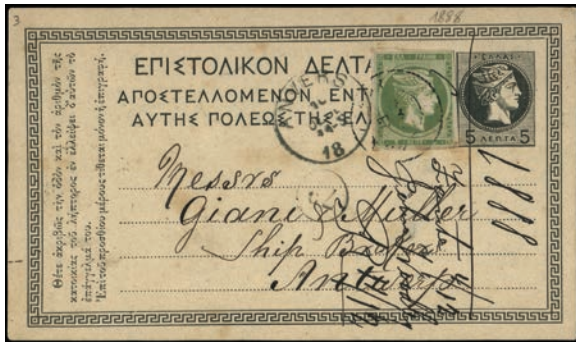 3
1888
ΕΠΙΣΤΟΛΙΚΟΝ ΔΕΛΤΑ
ΑΠΟΣΤΕΛΛΟΜΕΝΟΝ ΕΝΤ
ΑΥΤΗΣ ΠΟΛΕΩΣ ΤΗΣ ΕΛ
ΕΛΛΑΣ
5 ΛΕΠΤΑ 5
ANVERS
18
Θέτε ἀκριβῶς τὴν ὁδὸν καὶ τὸν ἀριθμὸν τῆς
κατοικίας τοῦ λήπτορος ἐν ἐλλείψει δ' αὐτῶν τὸ
ἐπάγγελμά του.
Ἐπὶ τοῦ προσθίου μέρους τίθεται μόνον ἡ ἐπιγραφή.
Messrs
Giani & Muller
Ship Brokers
Antwerp
1888